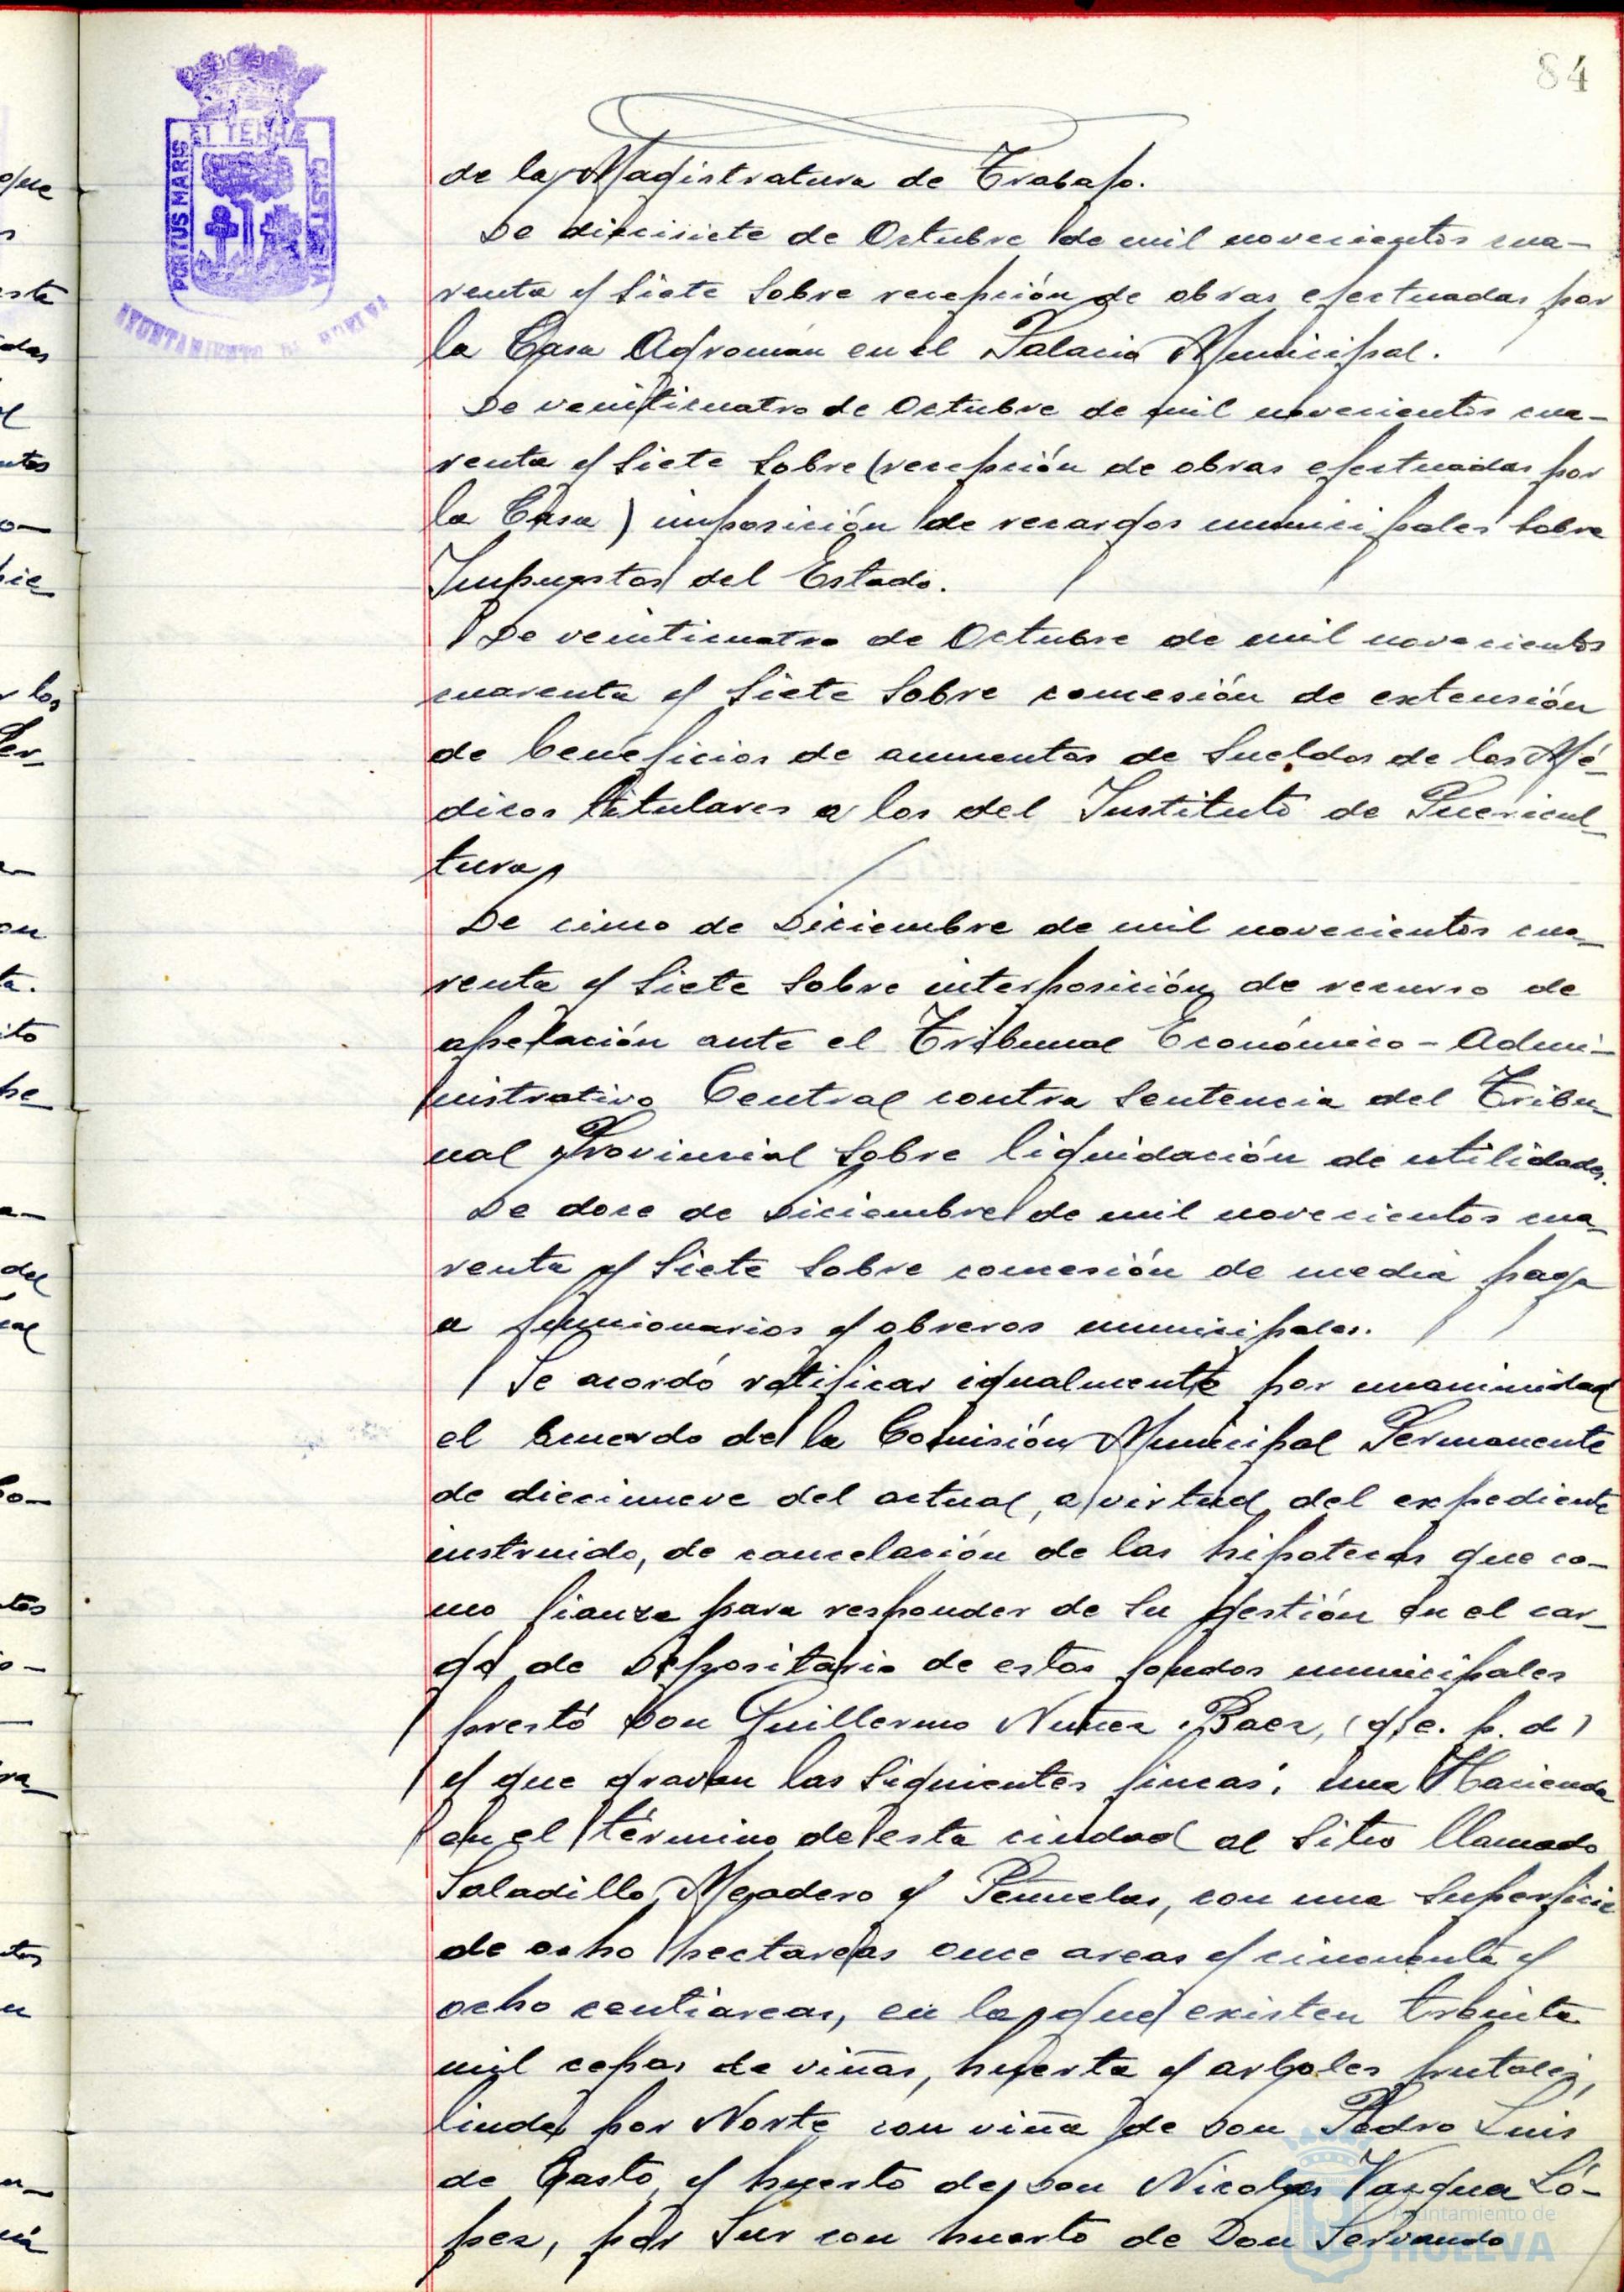 84
PORTUS MARIS ET TERRÆ CUSTODIA
AYUNTAMIENTO DE HUELVA
de la Magistratura de Trabajo.
De diecisiete de Octubre de mil novecientos cua-
renta y siete sobre recepción de obras efectuadas por
la Casa Agromán en el Palacio Municipal.
De veinticuatro de Octubre de mil novecientos cua-
renta y siete sobre (recepción de obras efectuadas por
la Casa) imposición de recargos municipales sobre
Impuestos del Estado.
De veinticuatro de Octubre de mil novecientos
cuarenta y siete sobre concesión de extensión
de beneficios de aumentos de sueldos de los Mé-
dicos titulares a los del Instituto de Puericul-
tura
De cinco de Diciembre de mil novecientos cua-
renta y siete sobre interposición de recurso de
apelación ante el Tribunal Económico-Admi-
nistrativo Central contra sentencia del Tribu-
nal Provincial sobre liquidación de utilidades.
De doce de Diciembre de mil novecientos cua-
renta y siete sobre concesión de media paga
a funcionarios y obreros municipales.
Se acordó ratificar igualmente por unanimidad
el acuerdo de la Comisión Municipal Permanente
de diecinueve del actual, a virtud del expediente
instruido, de cancelación de las hipotecas que co-
mo fianza para responder de su gestión en el car-
go de Depositario de estos fondos municipales
prestó Don Guillermo Nuñez Baez, (q. e. p. d)
y que gravan las siguientes fincas: una Hacienda
en el término de esta ciudad al sitio llamado
Saladillo, Mojadero y Peñuelas, con una superficie
de ocho hectareas once areas y cincuenta y
ocho centiareas, en la que existen treinta
mil cepas de viñas, huerta y arboles frutales,
linda por Norte con viña de Don Pedro Luis
de Gasto y huerto de Don Nicolas Vazquez Ló-
pez, por Sur con huerto de Don Servando
Ayuntamiento de
HUELVA